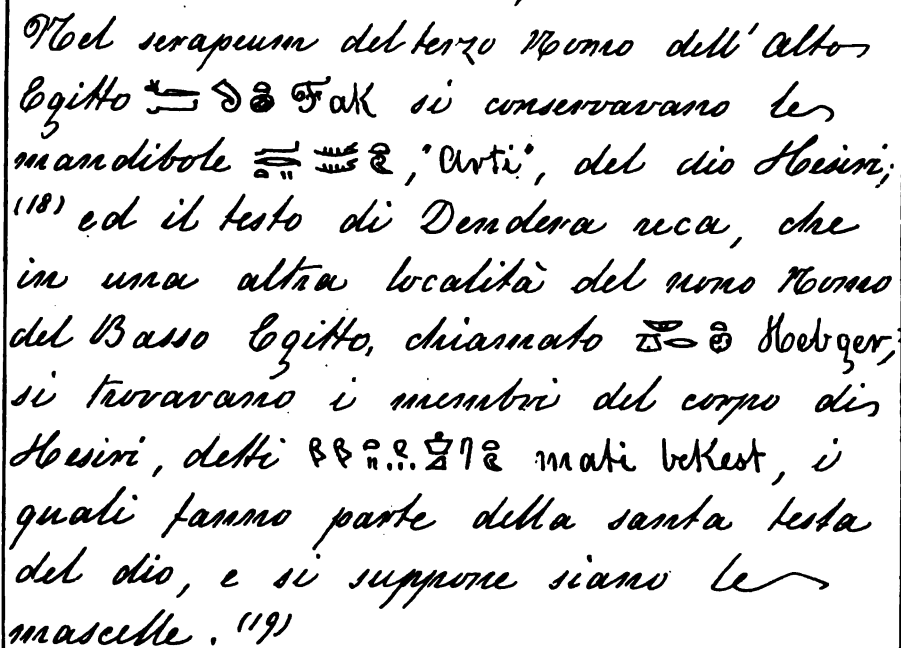 Nel serapeum del terzo Nomo dell' Alto
Egitto Fak si conservavano le
mandibole , "Arti", del dio Hesiri;
(18) ed il testo di Dendera reca, che
in una altra località del nono Nomo
del Basso Egitto, chiamato Hebger,
si trovavano i membri del corpo di
Hesiri, detti mati bekest, i
quali fanno parte della santa testa
del dio, e si suppone siano le
mascelle. (19)